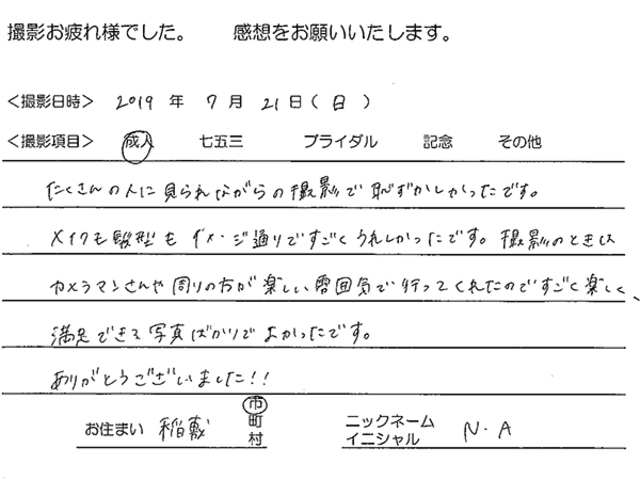 撮影お疲れ様でした。 感想をお願いいたします。
<撮影日時> 2019 年 7 月 21 日 ( 日 )
<撮影項目> 成人 七五三 ブライダル 記念 その他
たくさんの人に見られながらの撮影で恥ずかしかったです。
メイクも髪型もイメージ通りですごくうれしかったです。撮影のときは
カメラマンさんや周りの方が楽しい雰囲気で行ってくれたのですごく楽しく、
満足できる写真ばかりでよかったです。
ありがとうございました!!
お住まい 稲敷 市 町 村 ニックネーム イニシャル N・A